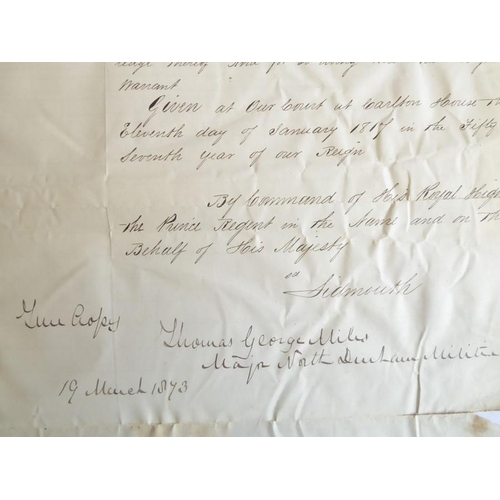 thereby And for so doing
Warrant
Given at Our Court at Carlton House th
Eleventh day of January 1817 in the Fifty
Seventh year of our Reign
By Command of His Royal High
the Prince Regent in the Name and on th
Behalf of His Majesty
sd
Sidmouth
True Copy
Thomas George Miles
Major North Durham Militia
19 March 1873